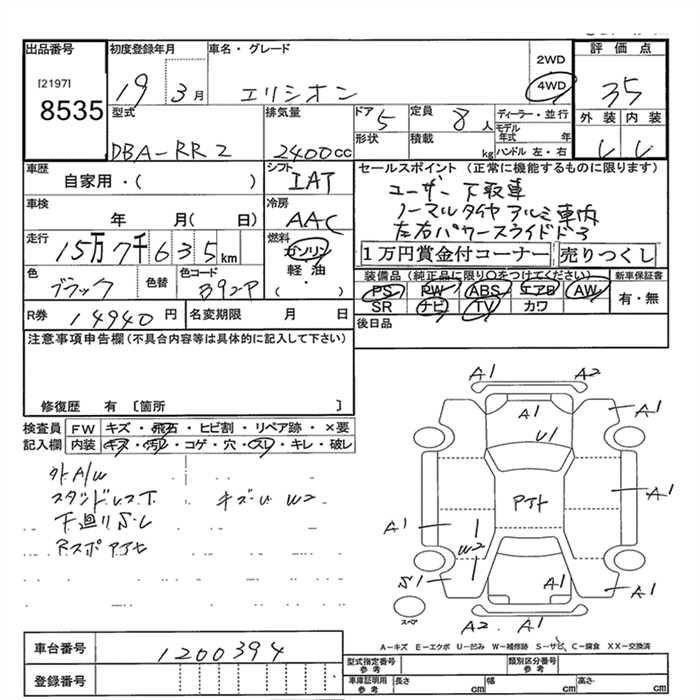 出品番号
[2197]
8535
初度登録年月
19 3月
車名・グレード
エリシオン
2WD
4WD
評価点
35
外装 内装
型式
DBA-RR2
排気量
2400cc
ドア 5
形状
定員 8人
積載 kg
ディーラー・並行
モデル年式 年
ハンドル 左・右
車歴
自家用・( )
シフト
IAT
セールスポイント (正常に機能するものに限ります)
ユーザー下取車
ノーマルタイヤ アルミ車内
左右パワースライドドア
1万円賞金付コーナー 売りつくし
車検
年 月( 日)
冷房
AAC
走行
15万7千635km
燃料
ガソリン
軽油
( ・ )
色
ブラック
色替
色コード
B92P
装備品(純正品に限り○をつけてください)
PS PW ABS エアB AW
SR ナビ TV カワ
新車保証書
有・無
R券 14940円
名変期限 月 日
後日品
注意事項申告欄(不具合内容等は具体的に記入して下さい)
修復歴 有 〔箇所 〕
検査員記入欄
FW キズ・飛石・ヒビ割・リペア跡・×要
内装 キズ・汚レ・コゲ・穴・スレ・キレ・破レ
外A/W
下廻りS・L
キズU W2
A1 A2
A1 A1
U1
A1
A1
W2
S1
A1
A1
A2 A1
スペア
A-キズ E-エクボ U-凹み W-補修跡 S-サビ C-腐食 XX-交換済
車台番号
1200394
登録番号
型式指定番号 参考
類別区分番号 参考
車庫証明用 参考
長さ cm 幅 cm 高さ cm